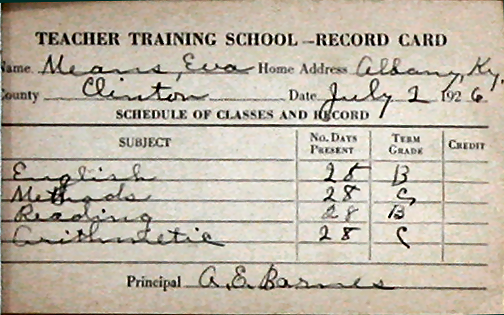 TEACHER TRAINING SCHOOL—RECORD CARD
Name Means, Eva Home Address Albany, Ky.
County Clinton Date July 2 1926
SCHEDULE OF CLASSES AND RECORD
SUBJECT No. DAYS PRESENT TERM GRADE CREDIT
English 28 B
Methods 28 C
Reading 28 B
Arithmetic 28 C
Principal A. E. Barnes